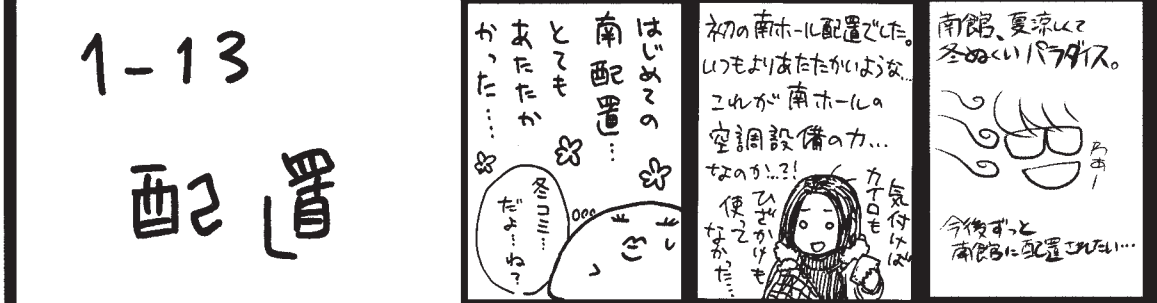 1-13
配置
はじめての
南配置…
とても
あたたか
かった……
冬コミ…
だよ…ね?
初の南ホール配置でした。
いつもよりあたたかいような…
これが南ホールの
空調設備の力…
なのか…?!
気付けば
カイロも
ひざかけも
使って
なかった…
南館、夏涼しくて
冬ぬくいパラダイス。
わぁー
今後ずっと
南館に配置されたい…